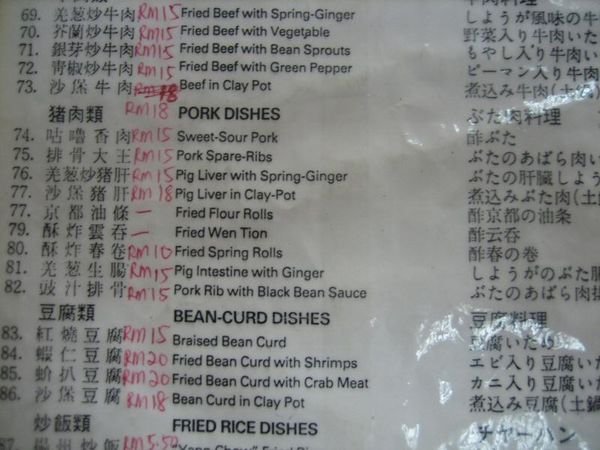 69. 羌葱炒牛肉 RM15 Fried Beef with Spring-Ginger しょうが風味の牛
70. 芥蘭炒牛肉 RM15 Fried Beef with Vegetable 野菜入り牛肉い
71. 銀芽炒牛肉 RM15 Fried Beef with Bean Sprouts もやし入り牛肉い
72. 青椒炒牛肉 RM15 Fried Beef with Green Pepper ピーマン入り牛肉
73. 沙堡牛肉 RM18 Beef in Clay Pot 煮込み牛肉(土鍋
猪肉類 RM18 PORK DISHES ぶた肉料理
74. 咕嚕香肉 RM15 Sweet-Sour Pork 酢ぶた
75. 排骨大王 RM15 Pork Spare-Ribs ぶたのあばら肉い
76. 羌葱炒猪肝 RM15 Pig Liver with Spring-Ginger ぶたの肝臓しょう
77. 沙堡猪肝 RM18 Pig Liver in Clay-Pot 煮込みぶた肉(土
77. 京都油條 — Fried Flour Rolls 酢京都の油条
79. 酥炸雲呑 — Fried Wen Tion 酢云呑
80. 酥炸春卷 RM10 Fried Spring Rolls 酢春の卷
81. 羌葱生腸 RM15 Pig Intestine with Ginger しょうがのぶた腸
82. 豉汁排骨 RM15 Pork Rib with Black Bean Sauce ぶたのあばら肉
豆腐類 BEAN-CURD DISHES 豆腐料理
83. 紅燒豆腐 RM15 Braised Bean Curd 豆腐いため
84. 蝦仁豆腐 RM20 Fried Bean Curd with Shrimps エビ入り豆腐い
85. 蚧扒豆腐 RM20 Fried Bean Curd with Crab Meat カニ入り豆腐い
86. 沙堡豆腐 RM18 Bean Curd in Clay Pot 煮込み豆腐(土鍋
炒飯類 FRIED RICE DISHES チャーハン
87. 揚州炒飯 RM5.50 "Yang Chow" Fried